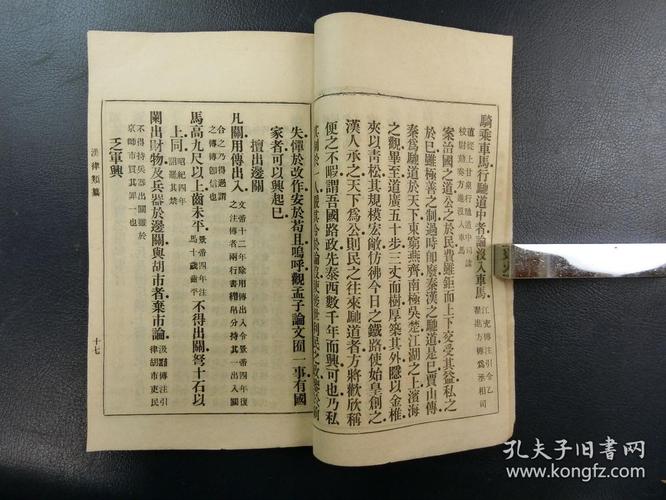 騎乘車馬行馳道中者論沒入車馬
江充傳注引令乙
翟進方傳爲丞相司
直從上甘泉行馳道中司隸
校尉勳奏方進沒入車馬
案治國之道公之於民費雖鉅而上下交受其益私之
於已雖極善之制過時卽廢秦漢之馳道是已賈山傳
秦爲馳道於天下東窮燕齊南極吳楚江湖之上濱海
之觀畢至道廣五十步三丈而樹厚築其外隱以金椎
夾以青松其規模宏敞彷彿今日之鐵路使始皇創之
漢人承之天下爲公則民之往來馳道者方將歡欣稱
便之不暇謂吾國路政先泰西數千年而興可也乃私
失憚於改作安於苟且嗚呼觀孟子論文囿一事有國
家者可以興起已
擅出邊關
凡關用傳出入
文帝十二年除用傳出入令景帝四年復
之注傳者兩行書繒帛分持其出入關
合之乃得過謂
之傳傳卽信也
馬高九尺以上齒未平
景帝四年注
馬十歲齒平
不得出關弩十石以
上同
昭紀四年
詔罷其禁
闌出財物及兵器於邊關與胡市者棄市論
汲黯傳注引
律胡市吏民
不得持兵器出關雖於
京師市買其罪一也
乏軍興
漢律類纂
十七
孔夫子旧书网
www.kongfz.com